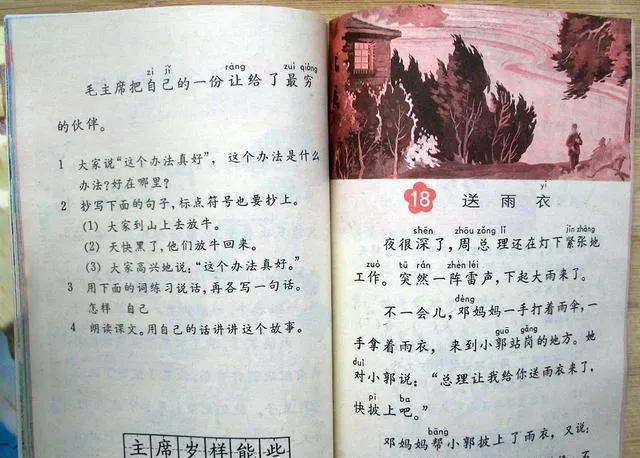 zì jǐ ràng zuì qióng
毛主席把自己的一份让给了最穷
的伙伴。
1 大家说“这个办法真好”，这个办法是什么
办法?好在哪里?
2 抄写下面的句子,标点符号也要抄上。
(1) 大家到山上去放牛。
(2) 天快黑了,他们放牛回来。
(3) 大家高兴地说:“这个办法真好。”
3 用下面的词练习说话,再各写一句话。
怎样 自己
4 朗读课文。用自己的话讲讲这个故事。
主席岁样能些
yī
18 送雨衣
shēn zhōu zǒng lǐ jǐn zhāng
夜很深了,周总理还在灯下紧张地
zuò tū rán zhèn léi
工作。突然一阵雷声,下起大雨来了。
dèng
不一会儿,邓妈妈一手打着雨伞,一
guō gǎng
手拿着雨衣,来到小郭站岗的地方。她
duì
对小郭说:“总理让我给你送雨衣来了,
pī ba
快披上吧。”
bāng
邓妈妈帮小郭披上了雨衣,又说: